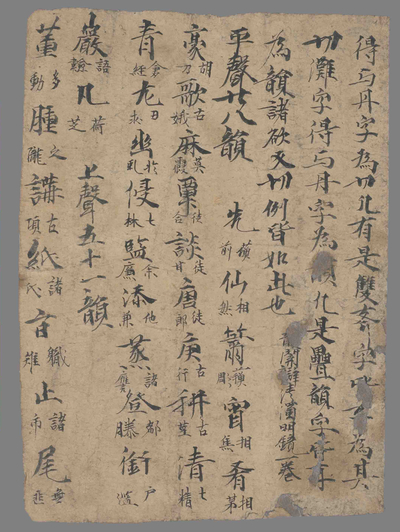 得与丹字為切凡有是雙聲字為其
切灘字得与丹字為韻凡是疊韻字
為韻諸欲反切例皆如此也
平聲廿八韻 先蘇前仙相然蕭蘇彫宵相焦肴相
豪胡刀歌古娥麻莫霞覃徒含談徒甘唐徒郎庚古行耕古莖清七精
青倉經尤求幽於虬侵七林監余廉添他兼蒸諸膺登都滕銜戶
嚴語凡苻芝 上聲五十一韻
董多動腫之隴講古項紙諸氏旨職雉止諸市尾無匪